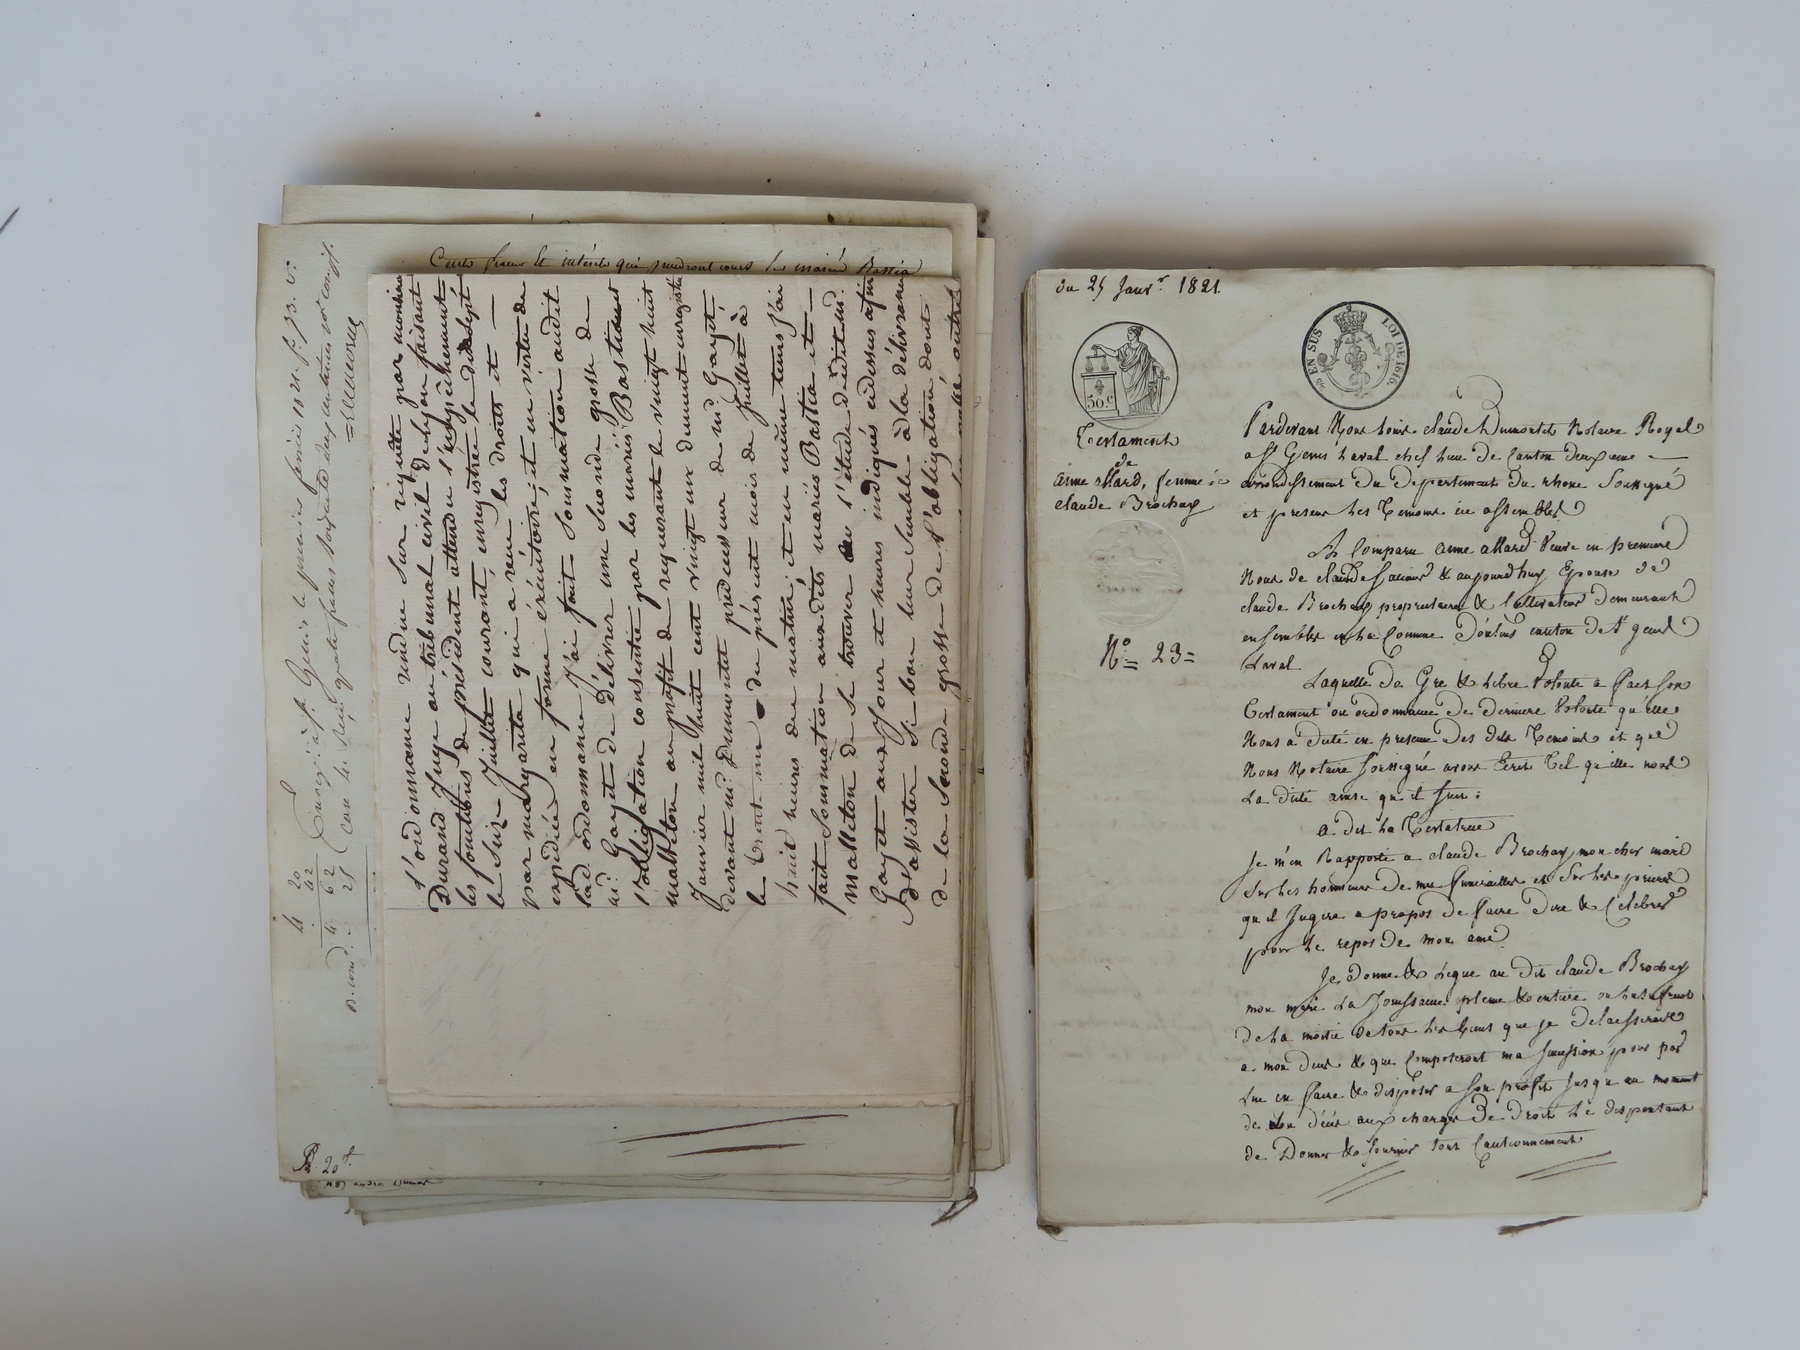 Cuite
intérêts qui prendront cours les mariés Bastia
l'ordonnance rendue sur requête par monsieur
Durand Juge au tribunal civil de Lyon faisant
les fonctions de président attendu l'empêchement
le seize Juillet courant, enregistrée le dixsept
par margarita qui a reçu les droits et —
expédiée en forme exécutoire; et en vertu de
lad. ordonnance J'ai fait Sommation audit
me. Gayet de délivrer une seconde grosse de
l'obligation consentie par les mariés Bastia
masseton au profit de requérant le vingt huit
Janvier mil huit cent vingt un dument enregistrée
devant me. Dumortet prédécesseur de me. Gayet,
le trente me du présent mois de Juillet à
huit heures du matin; et en même tems j'ai
fait Sommation auxdits mariés Bastia et —
Masseton de se trouver en l'étude dudit me.
Gayet aux Jour et heures indiqués cidessus afin
d'assister Si bon leur semble à la délivrance
de la seconde grosse de l'obligation dont
20
42
4. 62
25
Enregt. à St. Genis le
1821. f. 73. v.
R. 20
du 25 Janvr. 1821.
50.c
EN SUS
LOI DE 1816.
Testament
de
anne allard, femme de
claude Brochay
No = 23 =
Pardevant Nous Louis claude Dumortet Notaire Royal
a St Genis Laval chef lieu de Canton deuxieme —
arrondissement du departement du rhone Soussigné
et presens les Temoins en assemblés
A Comparu anne allard Veuve en premiere
Nous de claude & aujourdhuy Epouse de
claude Brochay proprietaire & Cultivateur demeurant
ensembles en la Comune D'oulins canton de St genis
Laval
Laquelle de Gre & Libre Volonte a fait son
Testament ou ordonnance de derniere Volonte qu'elle
Nous a dicté en presence des dits Temoins et que
Nous Notaire Soussigné avons Ecrit Tel qu'elle nous
La dicté ainsi qu'il suit:
a dit La Testatrice
Je m'en Rapporte a claude Brochay mon cher mari
sur les honneurs de mes funerailles et sur les prieres
qu'il Jugera a propos de faire dire & Celebrer
pour Le repos de mon ame
Je Donne & Legue au dit claude Brochay
mon mari La Jouissance pleine & entiere ou L'usufruit
de La moitie de tous les biens que je delaisserai
a mon deces & que Composeront ma succession pour par
Lui en faire & disposer a son profit Jusqu'au moment
de son déces aux charges de droit Le dispensant
de Donner & fournir tout Cautionnement